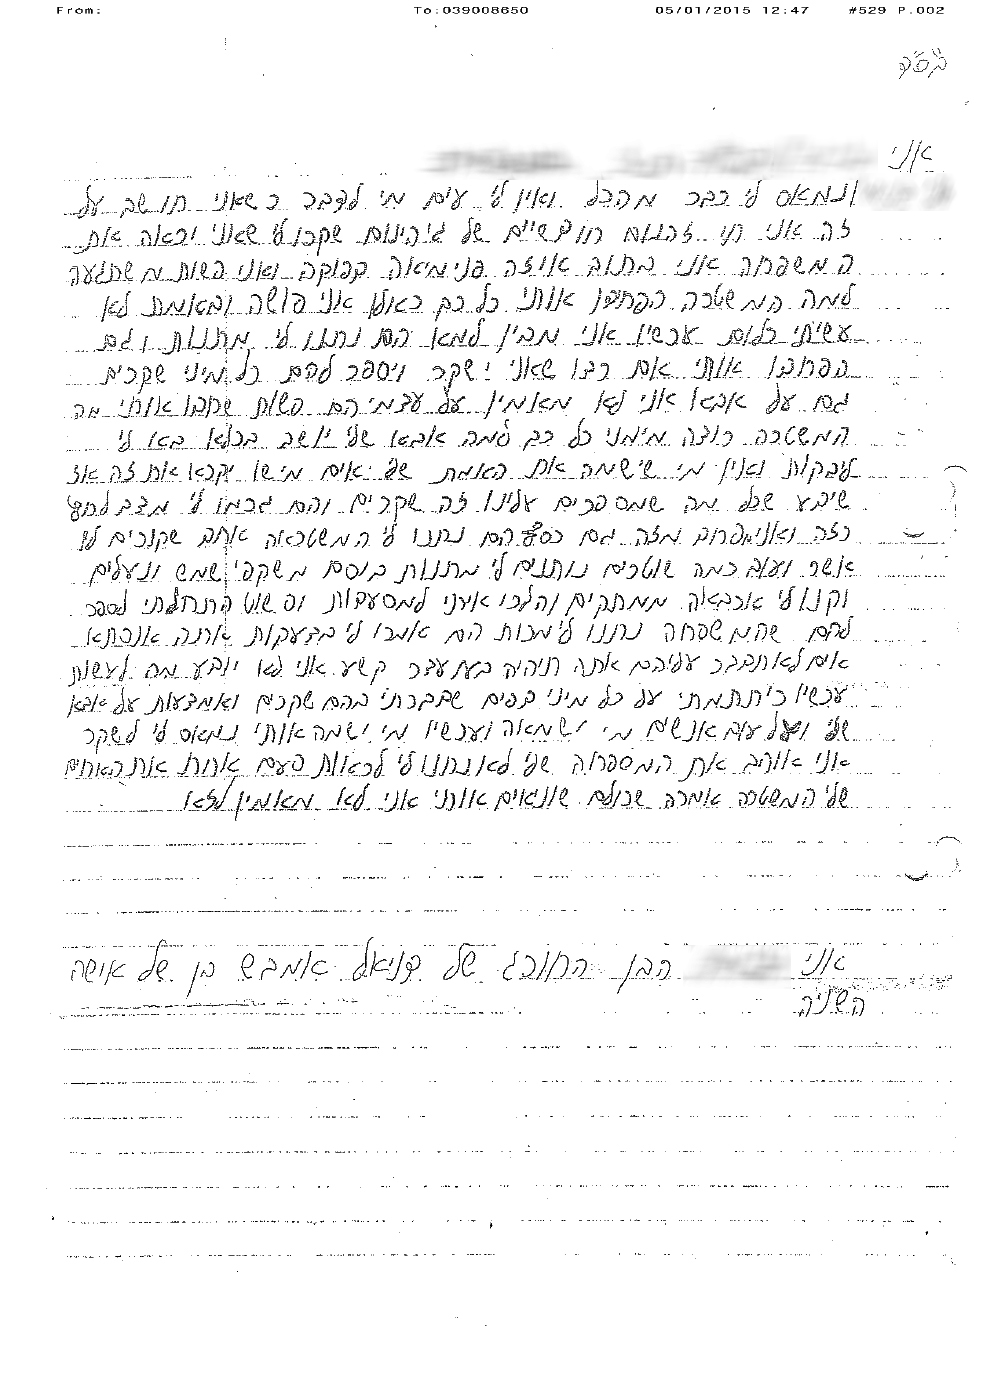 From: To:039008650 05/01/2015 12:47 #529 P.002
בס"ד
אני
ונמאס לי כבר מהכל ואין לי עים מי לדבר כשאני חושב על
זה אני חי זכרונות חודשיים של גיהינום שקרנו לי שאני יראה את
המשפחה אני בתוב איזה פנימיאה בפוקה ואני פשוט משתגעה
למה המשטרה הפחידו אותי כל כך כאילו אני פושה ובאמת לא
עשיתי כלום עכשיו אני מבין למא הם נתנו לי מתנות וגם
הפחדו אותי אם רצו שאני ישקר ויספר להם כל מיני שקרים
גם על אבא אני לא מאמין על עצמי הם פשות שחטו אותי מה
המשטרה רוצה מימני כל כך למה אבא שלי יושב בכלא בא לי
לבקות ואין מי שישמה את האמת שלי אים מישו יקרא את זה אז
שידע שכל מה שמספרים עלינו זה שקרים והם גרמו לי מצב לחץ
כזה ואני מפחד מזה גם כסף הם נתנו לי המשטראה אחד שקורים לו
אשר ועוד כמה שוטרים נותנים לי מתנות בוסם משקפי שמש ונעלים
וקנו לי ארבאה ממתקים והלכו איתי למסעדות ופשוט התחלתי לספר
להם שהמשפחה נתנו לי מכות הם אמרו לי בצעקות אתה
אים לא תדבר עליהם אתה תיהיה במעצר קשע אני לא יודע מה לעשות
עכשיו כי חתמתי על כל מיני דפים שדברתי בהם שקרים ואמצעות על אבא
שלי ועל עוד אנשים מי ישמאה ועכשיו מי ישמה אותי נמאס לי לשקר
אני אוהב את המספחה שלי לא נתנו לי לראות פעם אחת את האחים
שלי המשטרה אמרה שכולם שונאים אותי אני לא מאמין לזאו
אני הבן החורג של דניאל אמבש בן של אישה
השניה